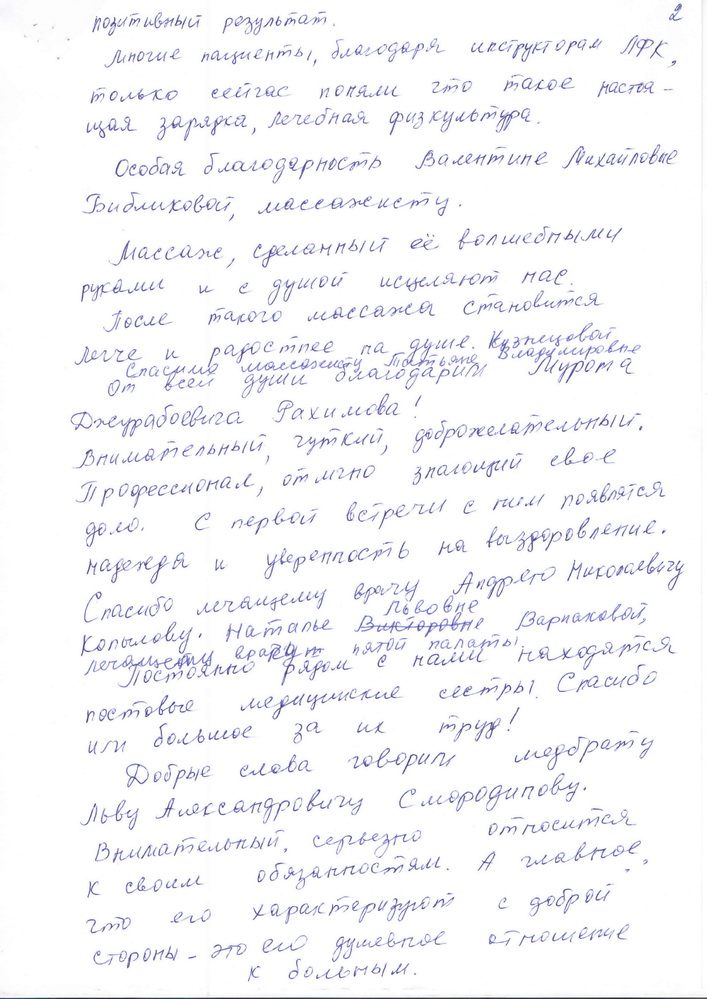 2
позитивный результат.
Многие пациенты, благодаря инструкторам ЛФК,
только сейчас поняли что такое настоя-
щая зарядка, лечебная физкультура.
Особая благодарность Валентине Михайловне
Бибиковой, массажисту.
Массаж, сделанный её волшебными
руками и с душой исцеляют нас.
После такого массажа становится
легче и радостнее на душе. Кузнецовой
Спасибо массажисту Татьяне Владимировне
От всей души благодарим Мурота
Джурабоевича Рахимова!
Внимательный, чуткий, доброжелательный.
Профессионал, отлично знающий свое
дело. С первой встречи с ним появлятся
надежда и уверенность на выздоровление.
Спасибо лечащему врачу Андрею Николаевичу
Львовне
Копылову. Наталье Викторовне Варнаковой,
лечащему врачу пятой палаты
Постоянно рядом с нами находятся
постовые медицинские сестры. Спасибо
им большое за их труд!
Добрые слова говорим медбрату
Льву Александровичу Смородинову.
Внимательный, серьезно относится
к своим обязанностям. А главное,
что его характеризуют с доброй
стороны - это его душевное отношение
к больным.